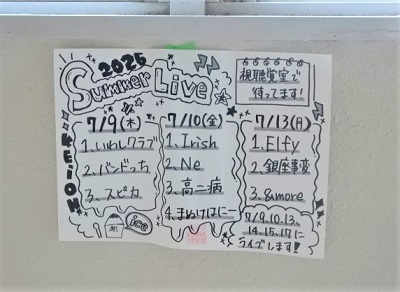 2026
Summer Live
視聴覚室で
待ってます!
K-EION
7/9(木)
1、いわしクラブ
2、バンドっち
3、スピカ
ice
7/10(金)
1、Irish
2、Ne
3、高二病
4、まぬけはにー
7/13(月)
1、Elfy
2、銀座事変
3、&more
7/9,10.13、
14.15.17に
ライブします!